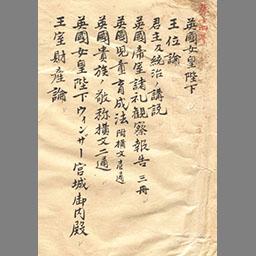 英國女皇陛下
王位論
君主及統治ノ講説
英國帝室諸礼観察報告 三冊
英國児童育成法 附横文壱通
英國貴族ノ敬称横文二通
英國女皇陛下ウィンサー宮城御内殿
王室財産論